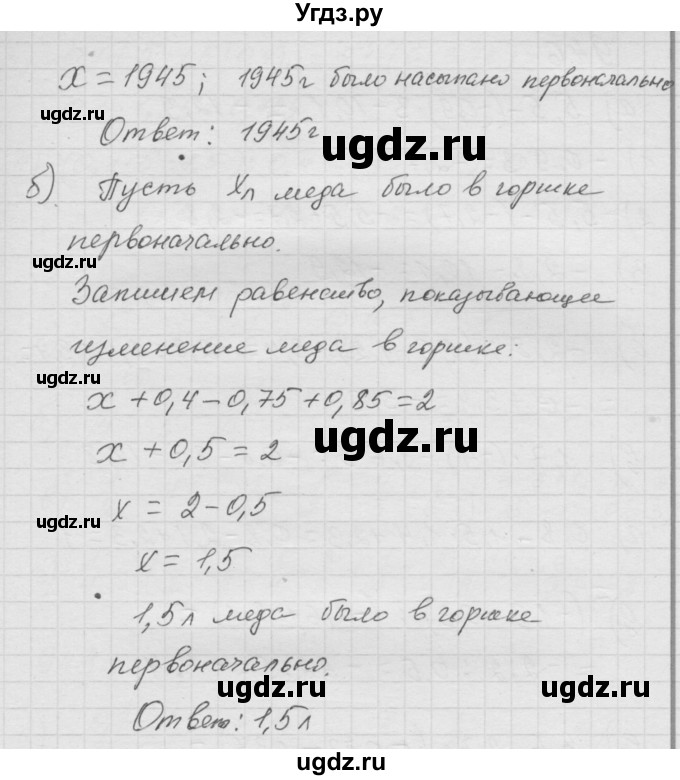 Угдз.ру
x = 1945; 1945г было насыпано первоначально
ugdz.ru
Ответ: 1945г
ugdz.ru
б) Пусть xл меда было в горшке
первоначально.
ugdz.ru
Запишем равенство, показывающее
изменение меда в горшке:
ugdz.ru
x + 0,4 - 0,75 + 0,85 = 2
ugdz.ru
x + 0,5 = 2
x = 2 - 0,5
ugdz.ru
x = 1,5
1,5л меда было в горшке
первоначально.
ugdz.ru
Ответ: 1,5л
ugdz.ru